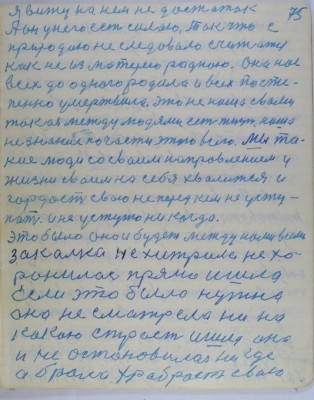 75
Я вижу на нем недостаток
А он у него ест силою, Так что с
природаю не следовало считатце
как не из матерю родною. Она нас
всех до одного родила и всех посте-
пенно умертвила. Это не наша с вами
такая между людями ест
незнание почасти этого всего. Мы та-
кие люди со своим направлением и
жизни своим на себя хвалимся и
гордост свою не перед кем не усту-
пат. и не уступю ни когда.
Это было оно и будет между нами всеми
закалка не хитрила не хо-
ронилас прямо и шла
Если это было нужна
она не сматрела ни на
какою страст и шла она
и не остановилас ни где
а брала храброст свою